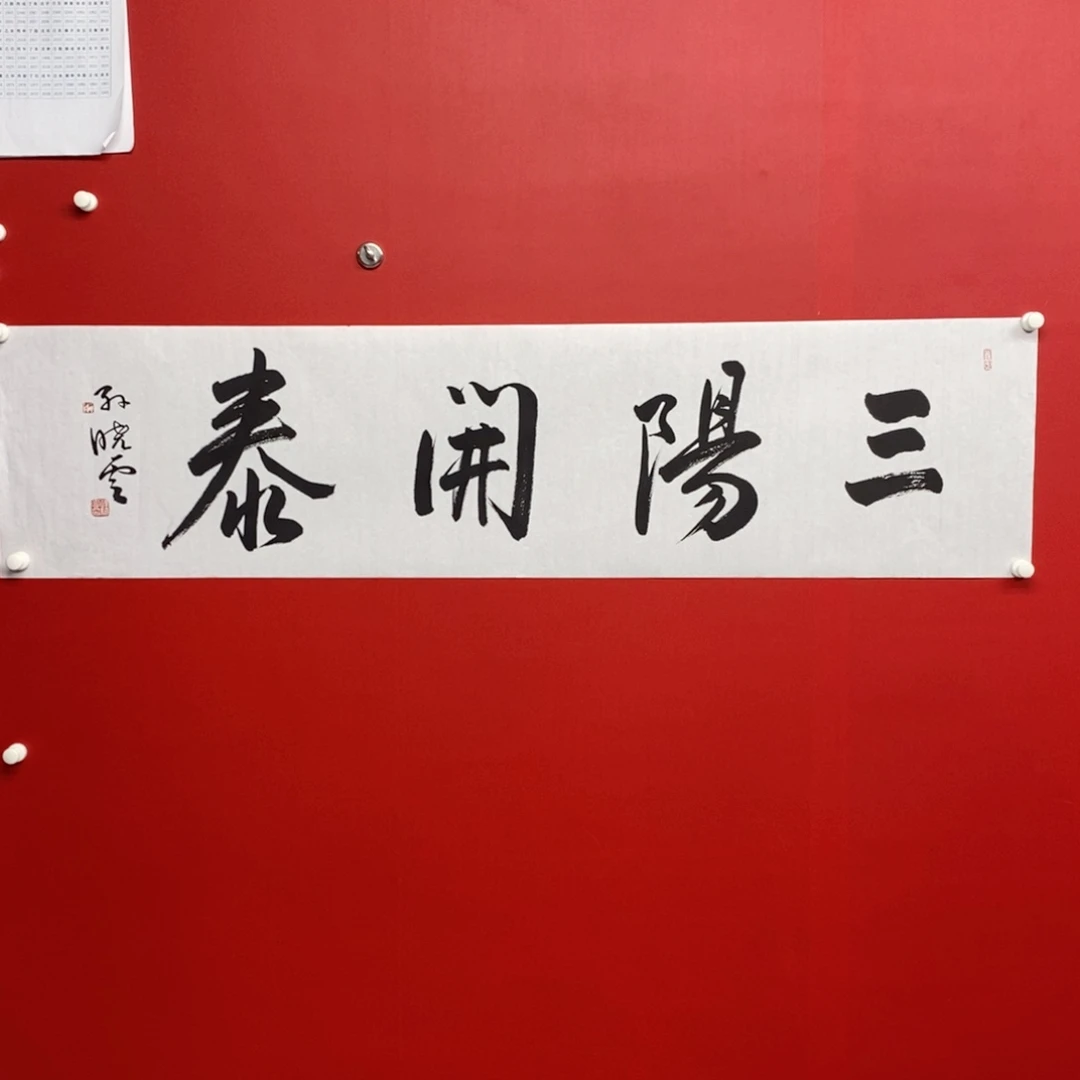 三陽開泰
孙晓云